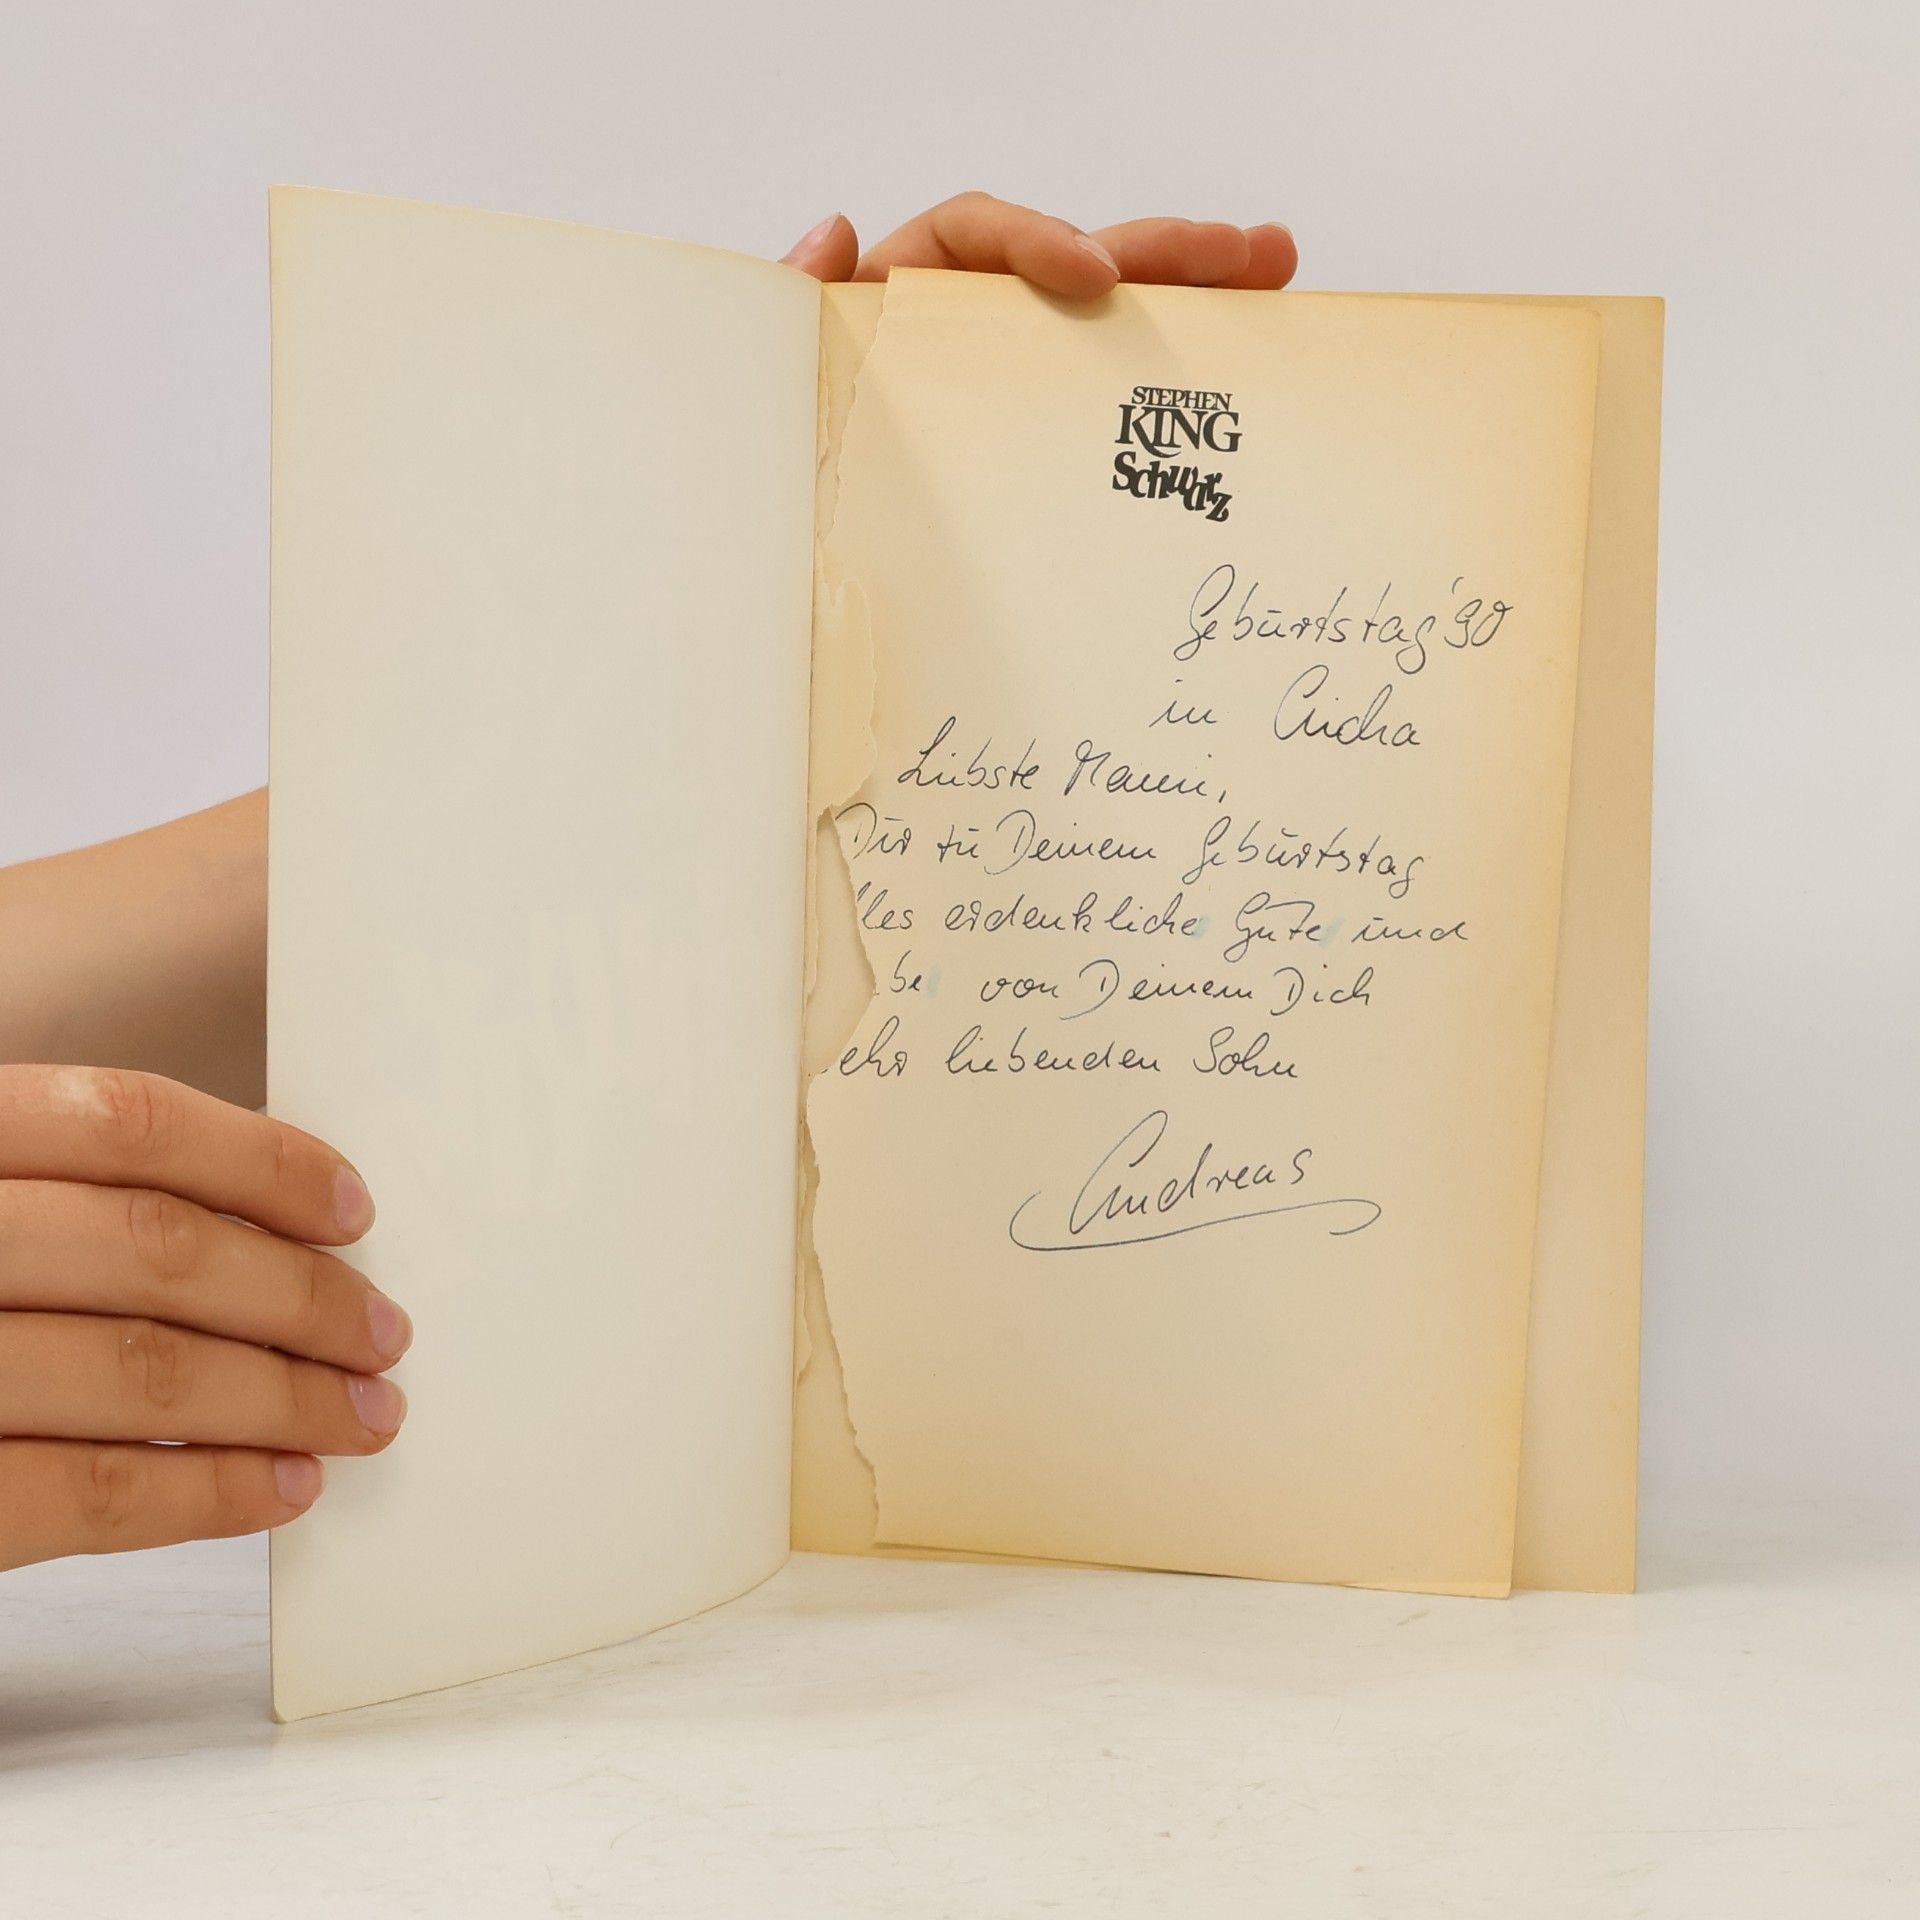 STEPHEN
KING
Schwarz
Geburtstag '90
in
Liebste Mami,
Dir zu Deinem Geburtstag
lles erdenkliche Gute und
be von Deinem Dich
ehr liebenden Sohn
Andreas